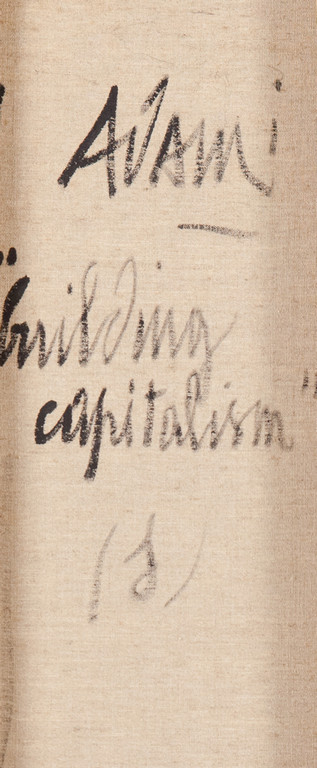 ADAMi
"building
capitalism"